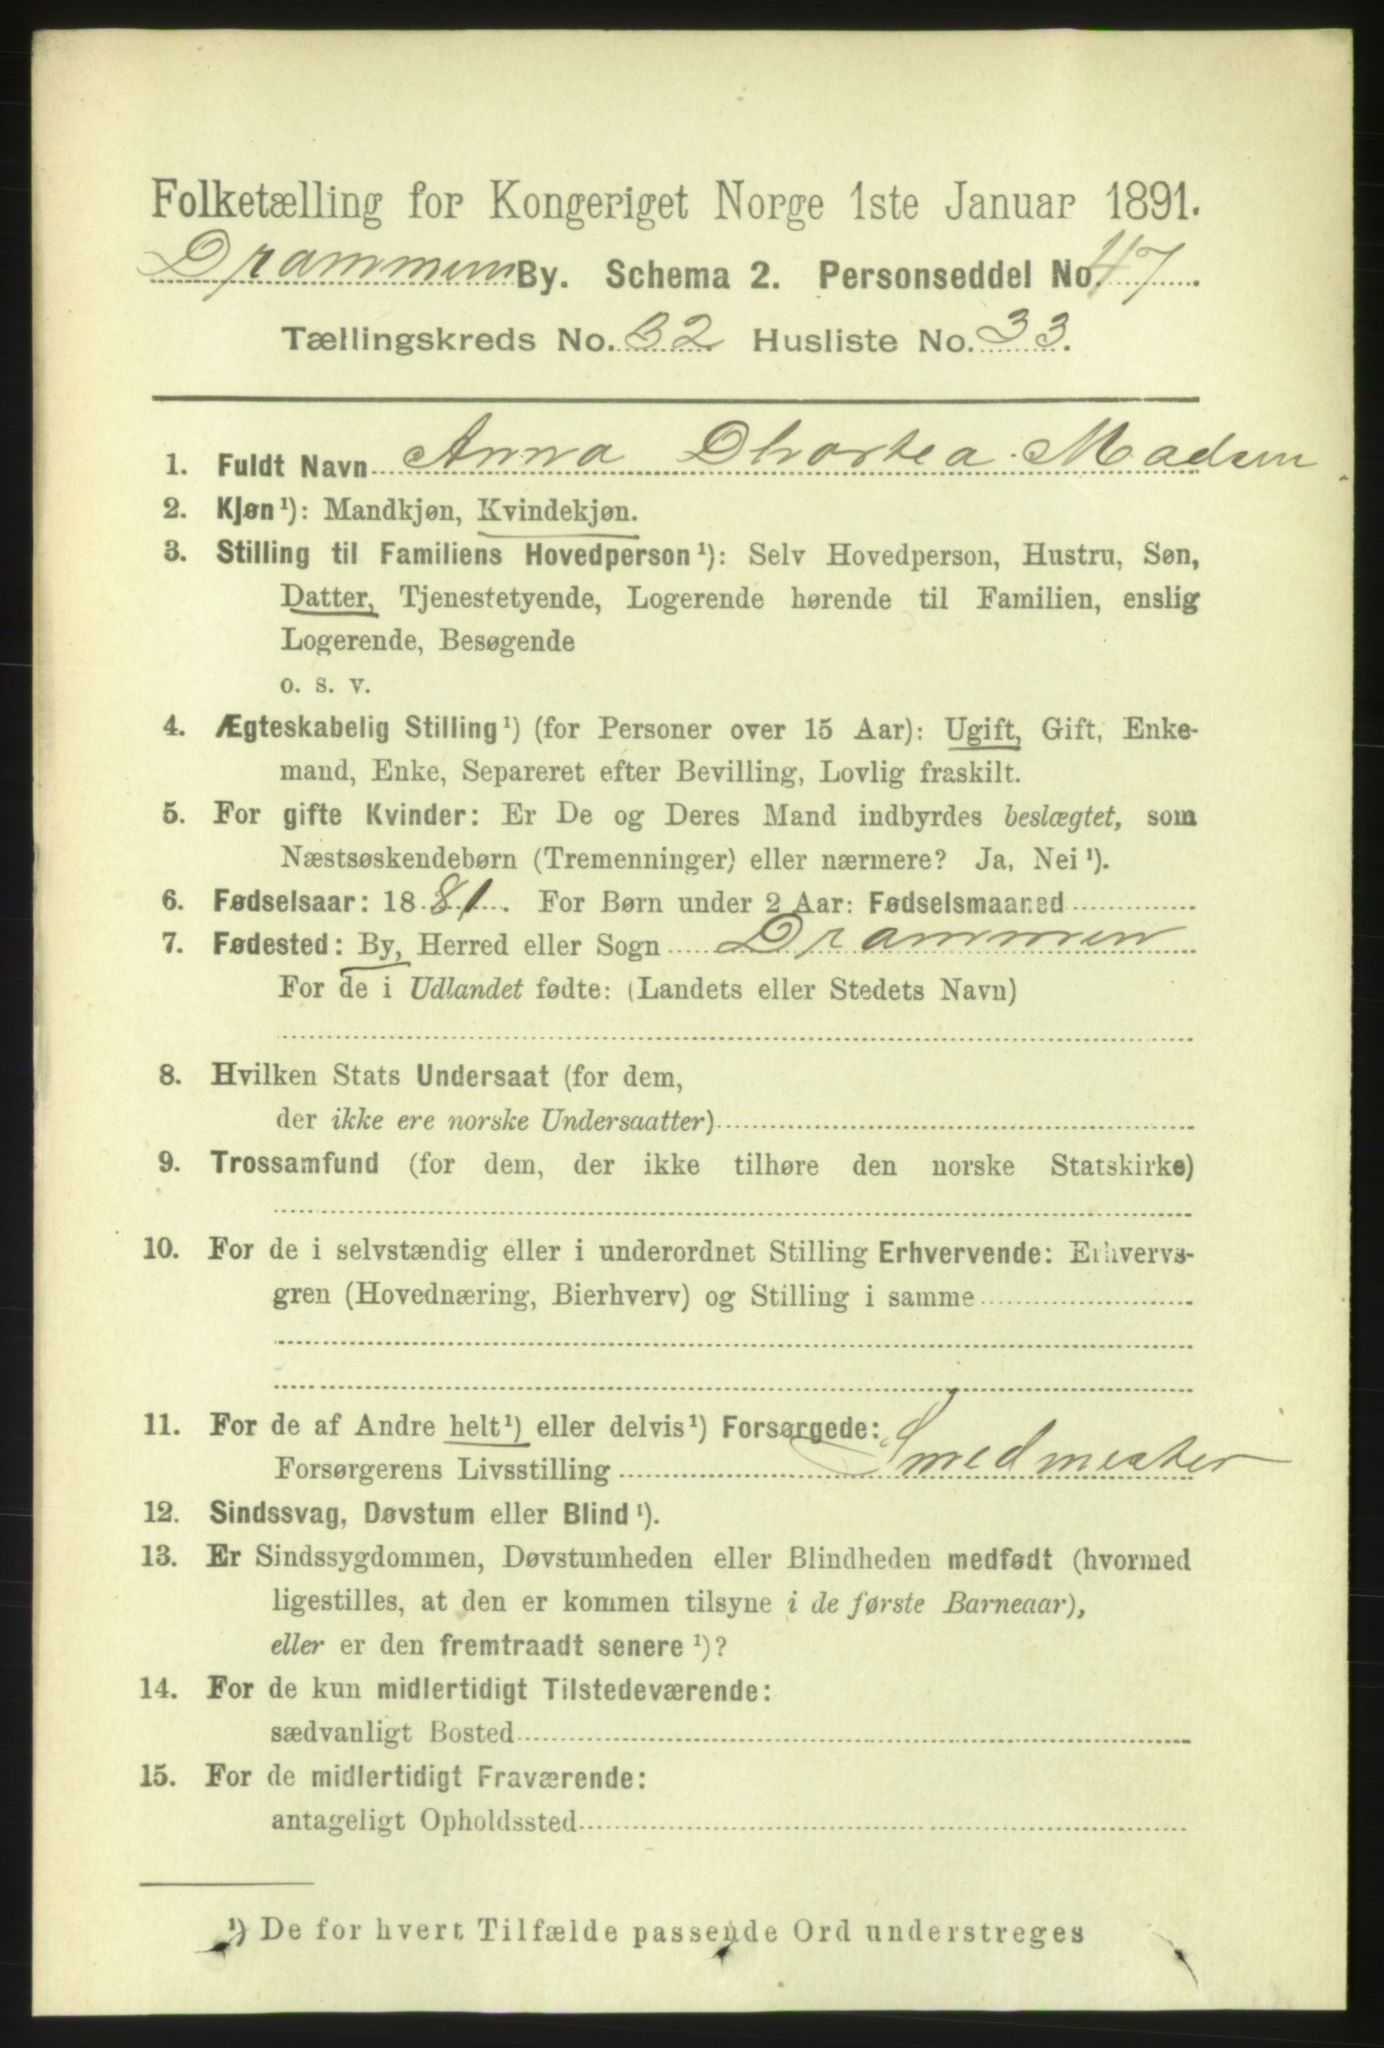 Folketælling for Kongeriget Norge 1ste Januar 1891.
Drammen By. Schema 2. Personseddel No. 47
Tællingskreds No. 32 Husliste No. 33.
1. Fuldt Navn Anna Dhortea Madsen
2. Kjøn¹): Mandkjøn, Kvindekjøn.
3. Stilling til Familiens Hovedperson¹): Selv Hovedperson, Hustru, Søn,
Datter, Tjenestetyende, Logerende hørende til Familien, enslig
Logerende, Besøgende
o. s. v.
4. Ægteskabelig Stilling¹) (for Personer over 15 Aar): Ugift, Gift, Enke-
mand, Enke, Separeret efter Bevilling, Lovlig fraskilt.
5. For gifte Kvinder: Er De og Deres Mand indbyrdes beslægtet, som
Næstsøskendebørn (Tremenninger) eller nærmere? Ja, Nei¹).
6. Fødselsaar: 1881. For Børn under 2 Aar: Fødselsmaaned
7. Fødested: By, Herred eller Sogn Drammen
For de i Udlandet fødte: (Landets eller Stedets Navn)
8. Hvilken Stats Undersaat (for dem,
der ikke ere norske Undersaatter)
9. Trossamfund (for dem, der ikke tilhøre den norske Statskirke)
10. For de i selvstændig eller i underordnet Stilling Erhvervende: Erhvervs-
gren (Hovednæring, Bierhverv) og Stilling i samme
11. For de af Andre helt¹) eller delvis¹) Forsørgede:
Forsørgerens Livsstilling Smedmester
12. Sindssvag, Døvstum eller Blind¹).
13. Er Sindssygdommen, Døvstumheden eller Blindheden medfødt (hvormed
ligestilles, at den er kommen tilsyne i de første Barneaar),
eller er den fremtraadt senere¹)?
14. For de kun midlertidigt Tilstedeværende:
sædvanligt Bosted
15. For de midlertidigt Fraværende:
antageligt Opholdssted
¹) De for hvert Tilfælde passende Ord understreges